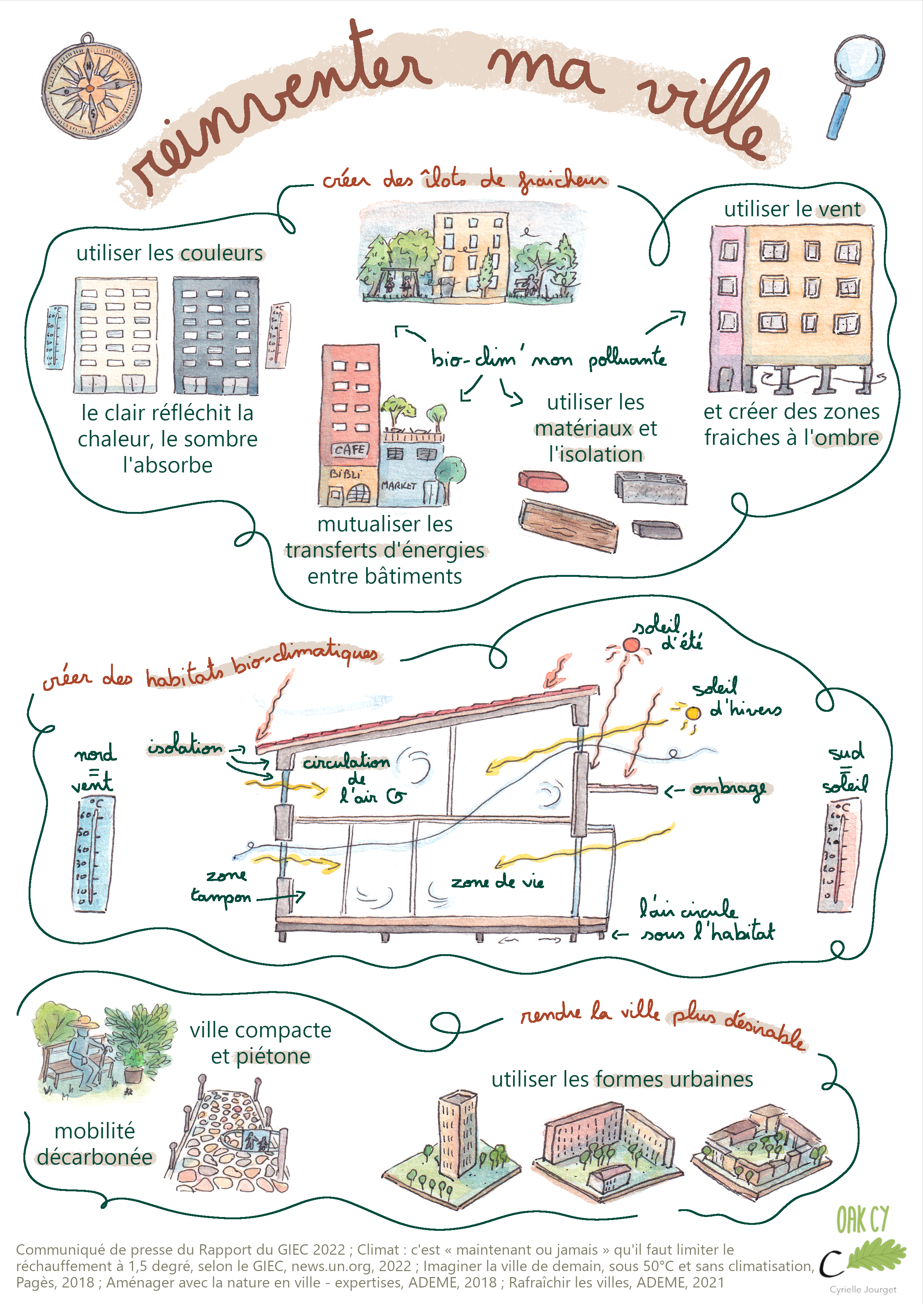 réinventer ma ville
créer des îlots de fraicheur
utiliser le vent
utiliser les couleurs
bio-clim' non polluante
le clair réfléchit la
chaleur, le sombre
l'absorbe
utiliser les
matériaux et
l'isolation
et créer des zones
fraiches à l'ombre
CAFE
BiBLi
MARKET
mutualiser les
transferts d'énergies
entre bâtiments
créer des habitats bio-climatiques
soleil
d'été
soleil
d'hivers
nord
=
vent
isolation
circulation
de
l'air
sud
=
soleil
ombrage
°C
60
50
40
30
20
10
0
°C
60
50
40
30
20
10
0
zone
tampon
zone de vie
l'air circule
sous l'habitat
rendre la ville plus désirable
ville compacte
et piétone
utiliser les formes urbaines
mobilité
décarbonée
OAK CY
Communiqué de presse du Rapport du GIEC 2022 ; Climat : c'est « maintenant ou jamais » qu'il faut limiter le
réchauffement à 1,5 degré, selon le GIEC, news.un.org, 2022 ; Imaginer la ville de demain, sous 50°C et sans climatisation,
Pagès, 2018 ; Aménager avec la nature en ville - expertises, ADEME, 2018 ; Rafraîchir les villes, ADEME, 2021
C
Cyrielle Jourget